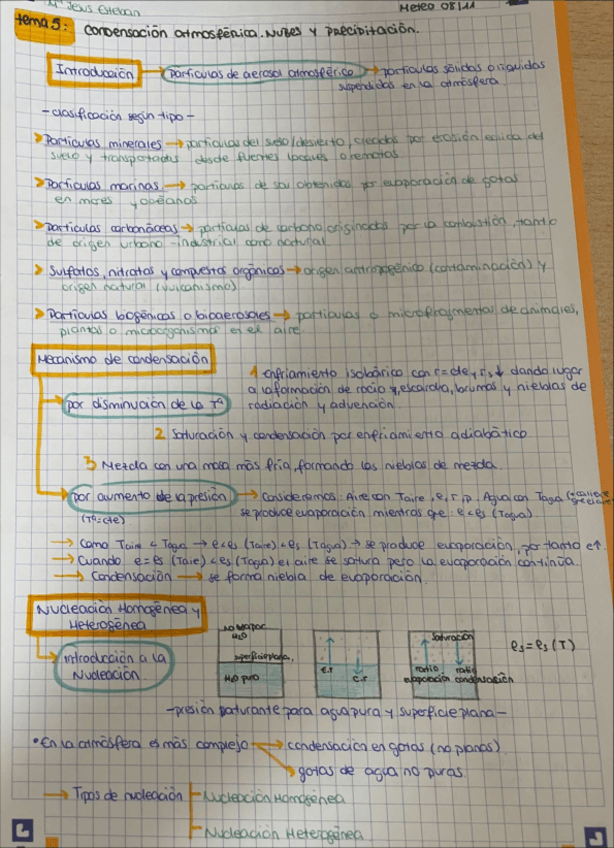 Mª Jesús Esteban
Meteo 08/11
tema 5: Condensación atmosférica. Nubes y Precipitación.
Introducción → partículas de aerosol atmosférico → partículas sólidas o líquidas
suspendidas en la atmósfera
-clasificación según tipo-
> Partículas minerales → partículas del suelo/desierto, creadas por erosión eólica del
suelo y transportadas desde fuentes locales o remotas
> Partículas marinas → partículas de sal obtenidas por evaporación de gotas
en mares y océanos
> Partículas carbonáceas → partículas de carbono, originadas por la combustión, tanto
de origen urbano-industrial como natural
> Sulfatos, nitratos y compuestos orgánicos → origen antropogénico (contaminación) y
origen natural (vulcanismo)
> Partículas biogénicas o bioaerosoles → partículas o microfragmentos de animales,
plantas o microorganismos en el aire.
Mecanismo de condensación
por disminución de la Tª
1 enfriamiento isobárico con r=cte y rs↓ dando lugar
a la formación de rocío y escarcha, brumas y nieblas de
radiación y advención
2 Saturación y condensación por enfriamiento adiabático
3 Mezcla con una masa más fría, formando las nieblas de mezcla.
por aumento de la presión → Consideramos: Aire con Taire, e, r, p. Agua con Tagua
(Tª=cte)
se produce evaporación mientras que: e<es (Tagua)
→ Como Taire < Tagua → e<es (Taire) < es (Tagua) → se produce evaporación, por tanto e↑
→ Cuando e=es (Taire) < es (Tagua) el aire se satura pero la evaporación continúa
→ Condensación → se forma niebla de evaporación
Nucleación Homogénea y
Heterogénea
introducción a la
Nucleación
no vapor
H₂O
superficie plana
H₂O puro
e.r
c.r
Saturación
ratio evaporación
ratio condensación
es=es(T)
-presión saturante para agua pura y superficie plana-
• En la atmósfera es más complejo → condensación en gotas (no planas)
→ gotas de agua no puras.
→ Tipos de nucleación
Nucleación Homogénea
Nucleación Heterogénea